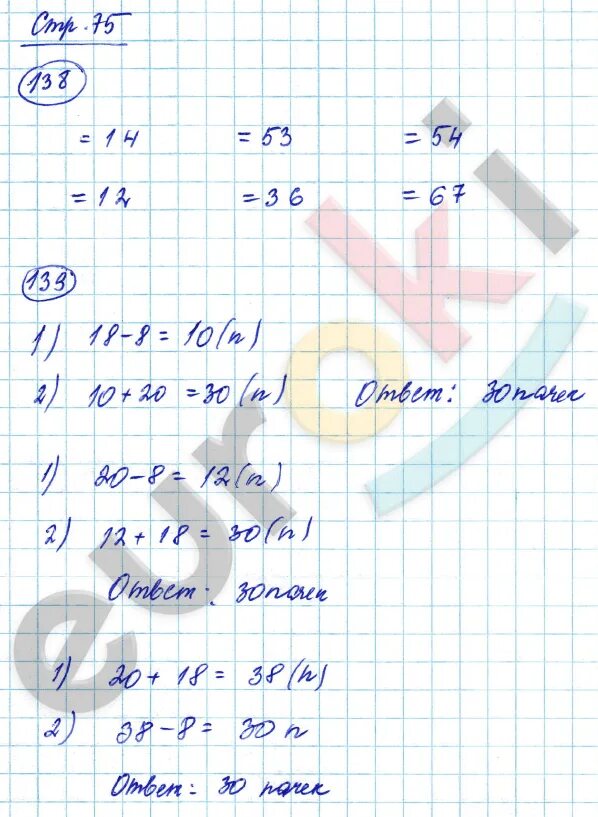 Стр. 75
138
= 14 = 53 = 54
= 12 = 36 = 67
139
1) 18-8 = 10 (п)
2) 10 + 20 = 30 (п) Ответ: 30 пачек
1) 20-8 = 12 (п)
2) 12 + 18 = 30 (п)
Ответ: 30 пачек
1) 20 + 18 = 38 (п)
2) 38-8 = 30 п
Ответ: 30 пачек
euroki